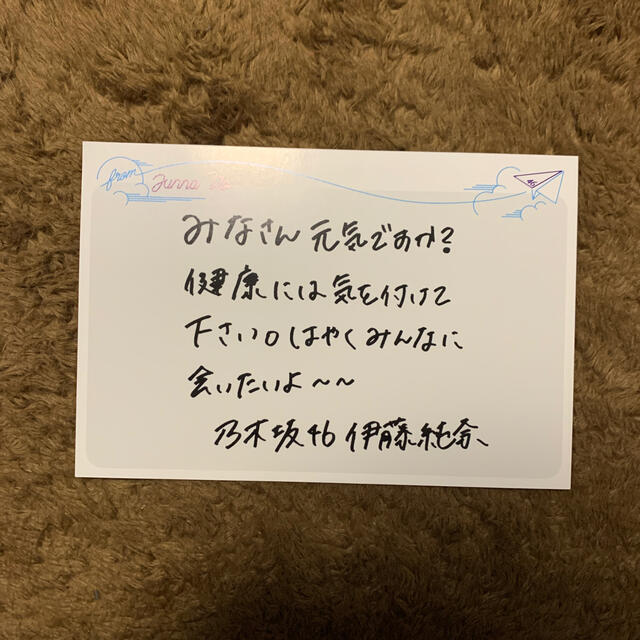 from Junna
みなさん元気ですか?
健康には気を付けて
下さい。はやくみんなに
会いたいよ〜〜
乃木坂46 伊藤純奈、